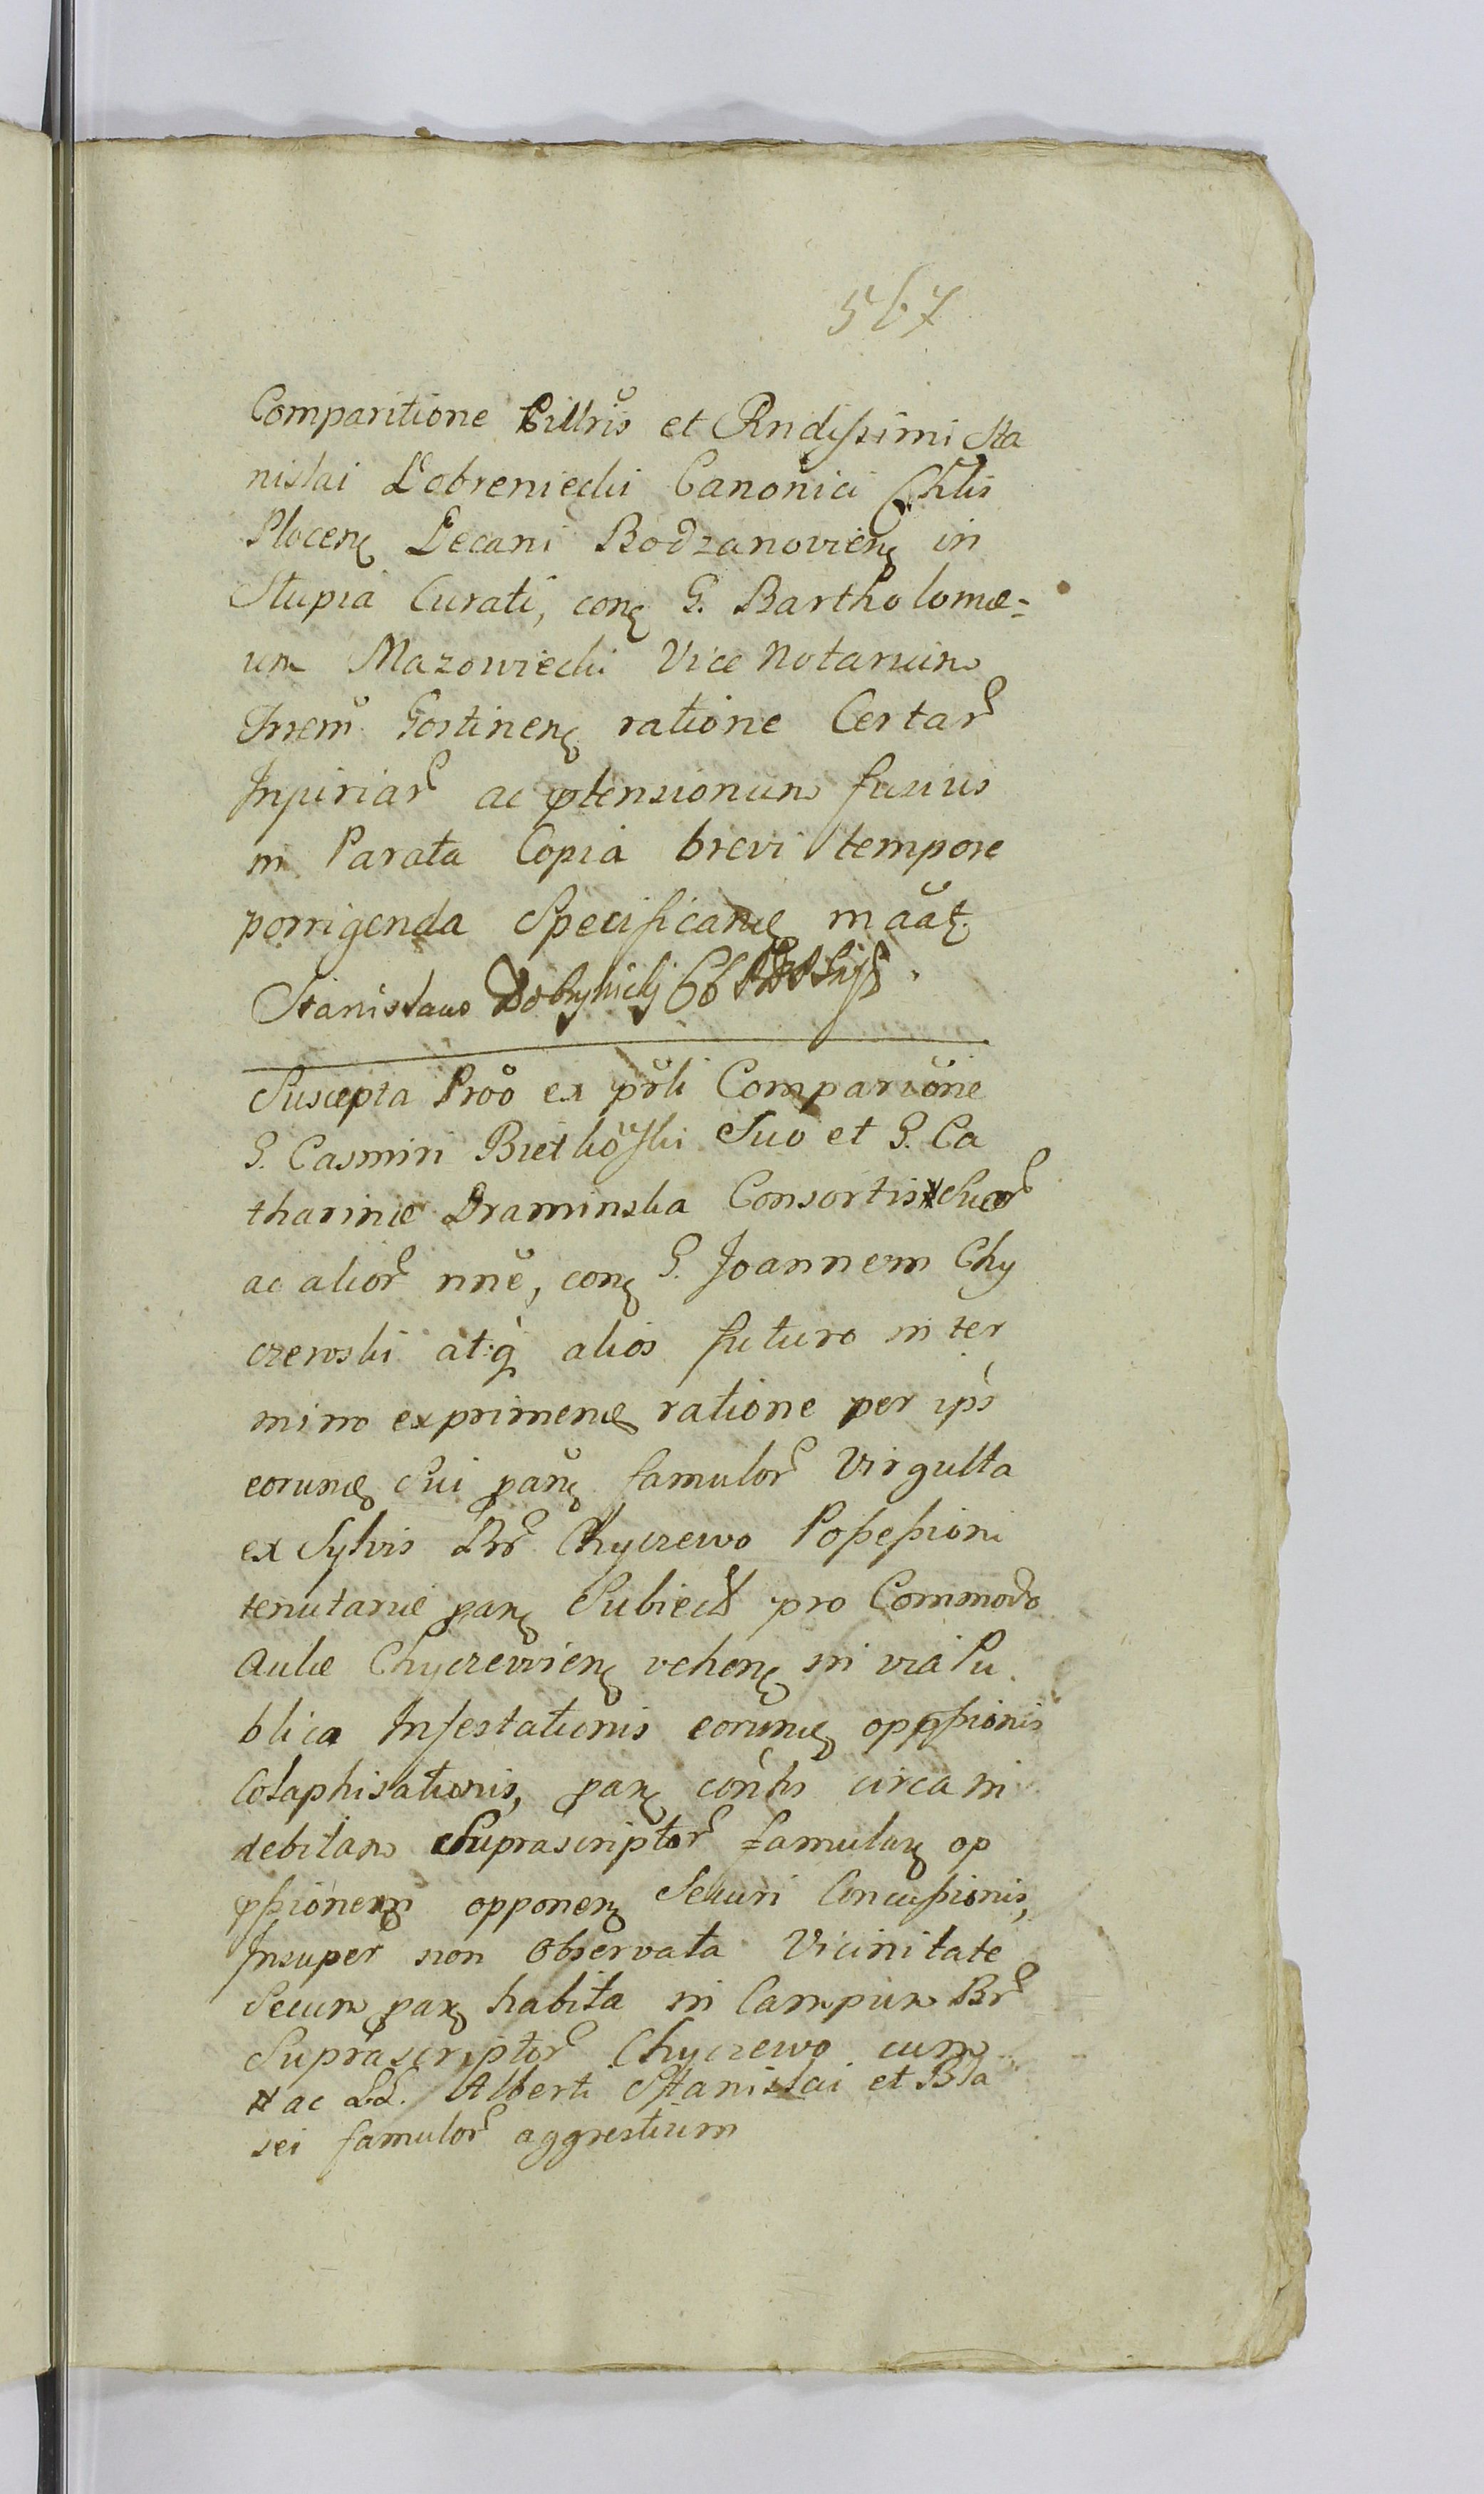 567
Comparitione Pillris et Rndissimi Sta
nislai Dobreniecki Canonici Cthlis
Plocen Decani Bodzanovien in
Slupia Curati, con G. Bartholomæ=
um Mazowiecki Vice Notarium
Trrem Gostinen ratione Certar
Injuriar ac ptensionum fusius
in Parata Copia brevi tempore
porrigenda Specificand māāt
Stanislaus
Suscepta Proō ex pōli Compariōne
G. Casmiri Suo et G. Ca
tharinæ Draminska Consortis * Suor
ac alior nnē, con G. Joannem Chy
czewski atq alios futuro in ter
mino exprimend ratione per ips
eorund Sui par famulor Virgulta
ex Sylvis Bor Chyczewo Possessioni
tenutariæ par Subiect pro Commodo
Aulæ Chyczewien vehen in via Pu
blica Infestationis eorund oppssionis
Colaphisationis, par conths circa in
debitam Suprascriptor famulor op
pssionem opponen Securi Concussionis,
Insuper non Observata Vicinitate
Secum par habita in Campum Br
Suprascriptor Chyczewo cum
* ac LL. Alberti Stanislai et Bla
sei famulor aggrestium